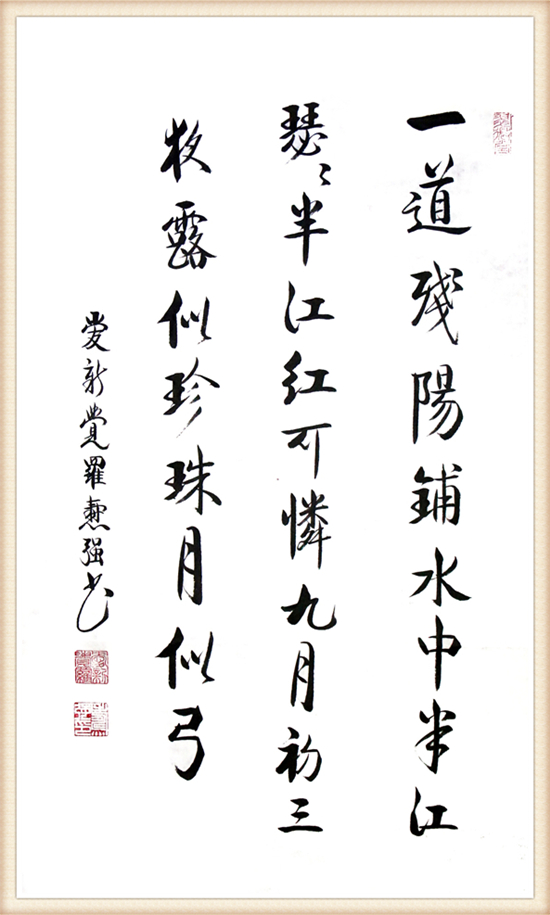 一道殘陽鋪水中半江
瑟々半江紅可憐九月初三
夜露似珍珠月似弓
愛新覺羅强书